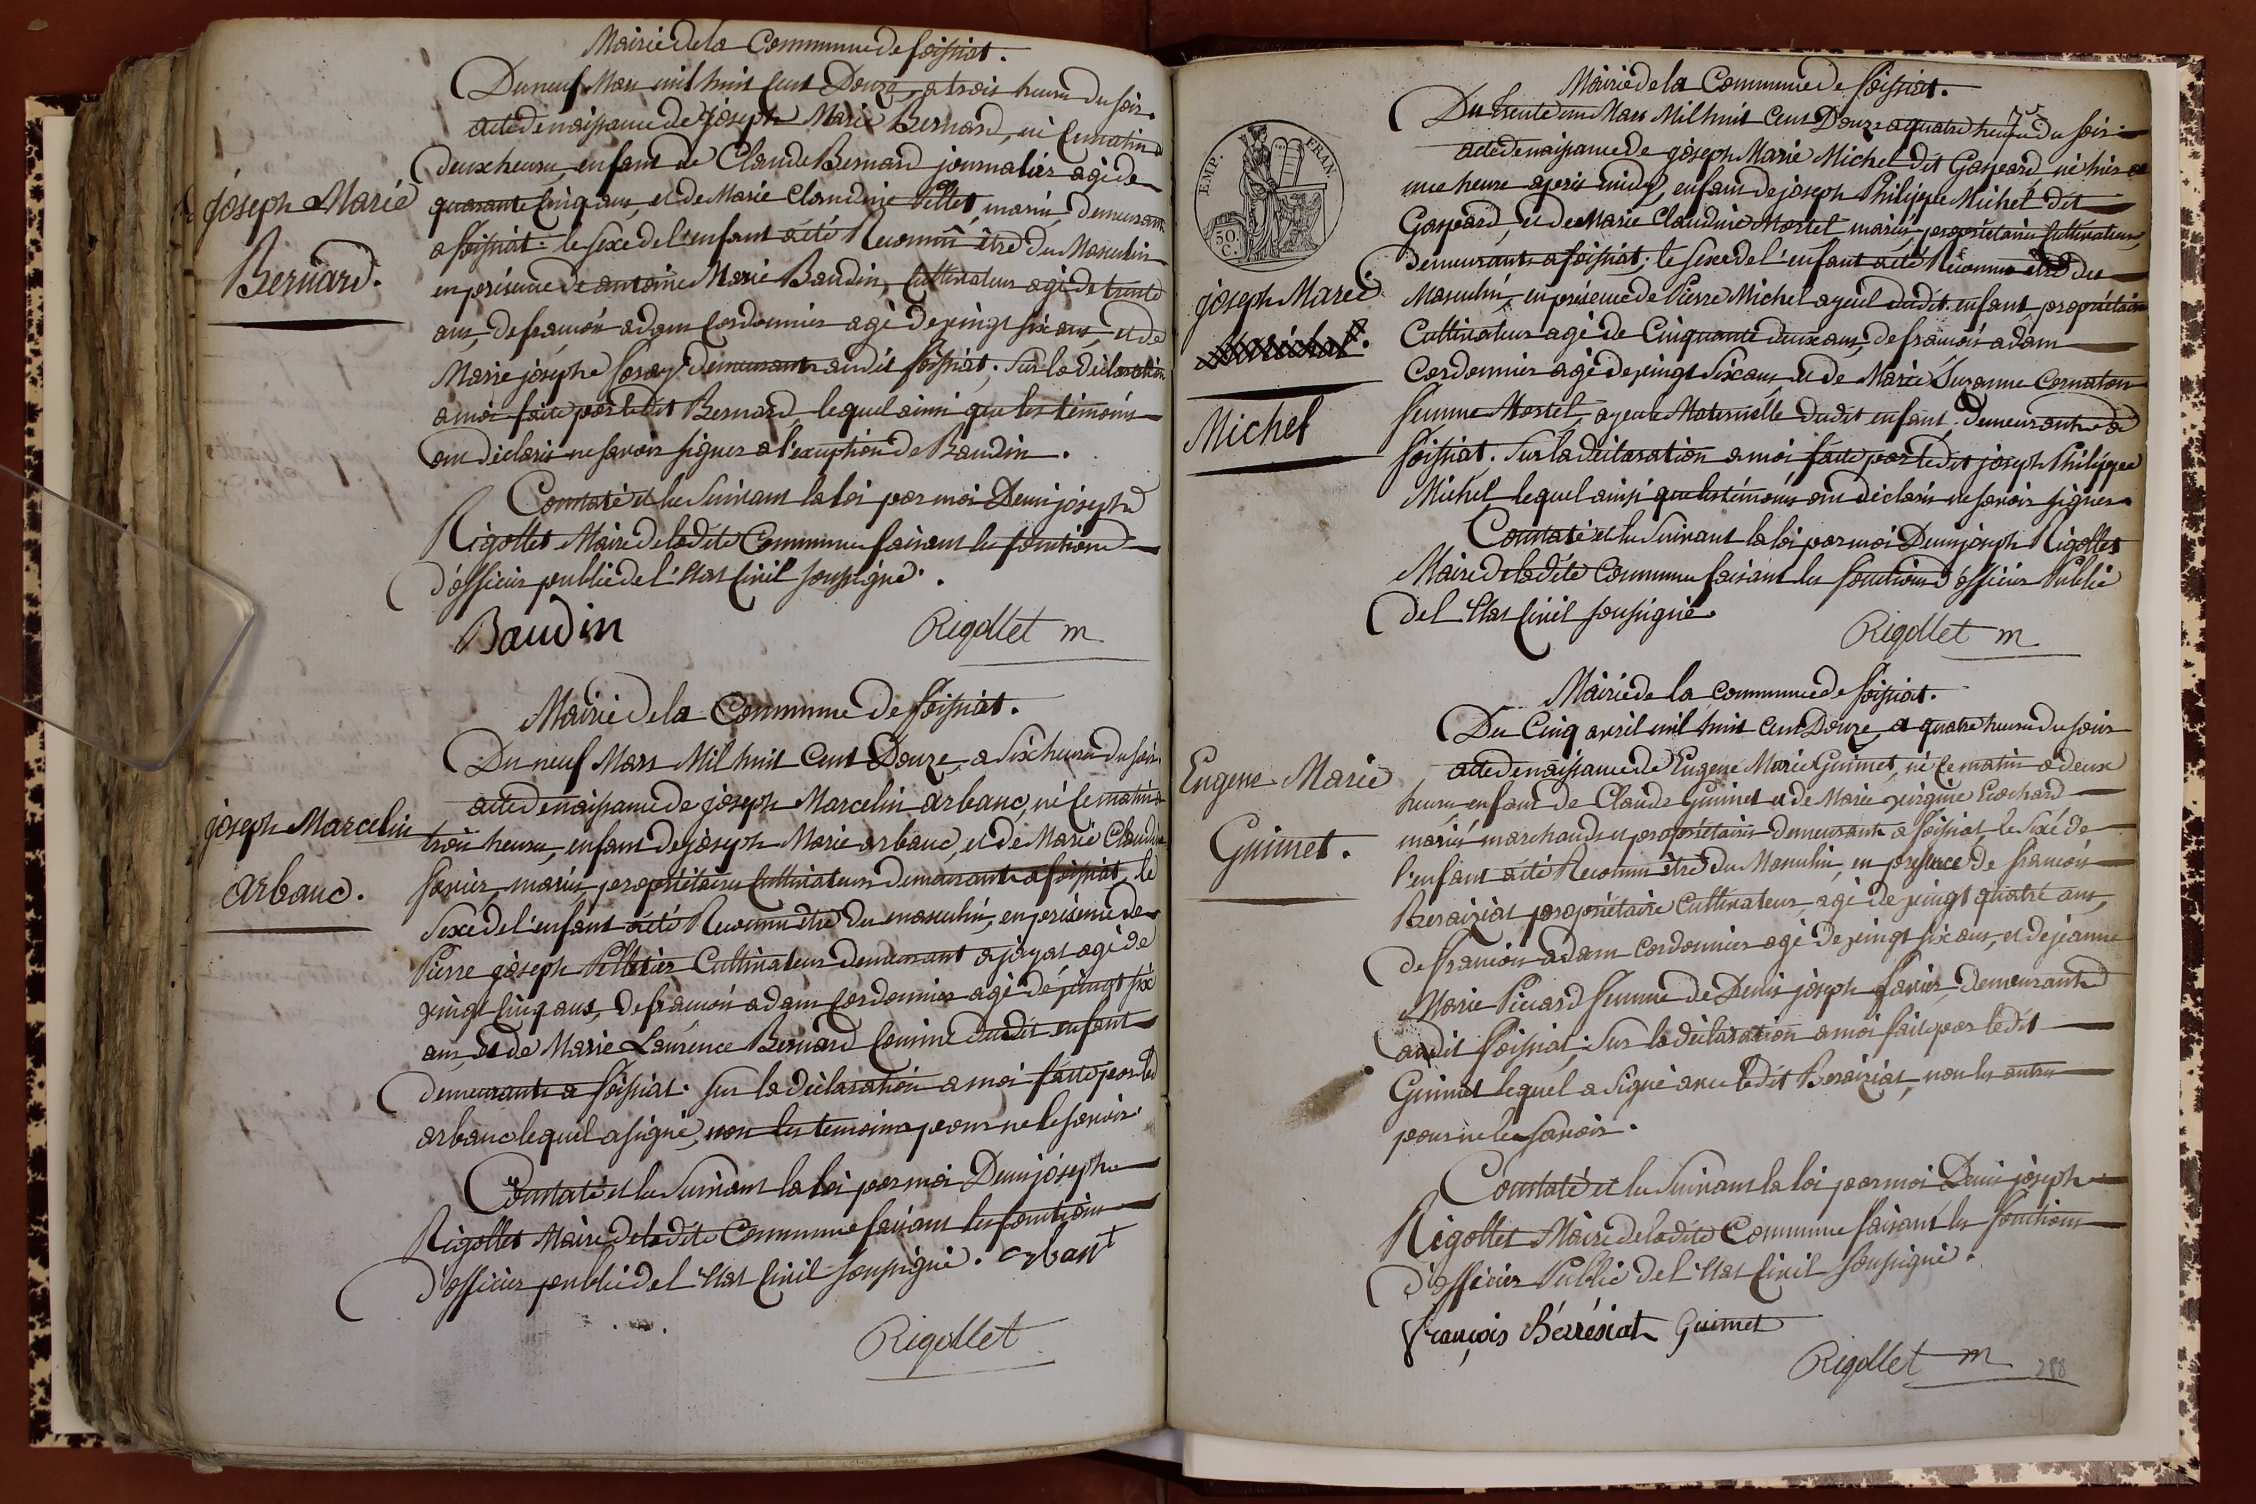 Mairie de la Commune de foissiat.
Du neuf Mars mil huit Cent Douze, a trois heures du soir.
acte de naissance de joseph Marie Bernard, né Ce matin a
deux heures, enfant de Claude Bernard journalier agé de
quarante Cinq ans, et de Marie Claudine Pellet, mariés, demeurant
joseph Marie
Bernard.
a foissiat. le sexe de l'enfant a été Reconnu être du Masculin
en présence de antoine Marie Baudin, Cultivateur agé de trente
ans, de francois adam Cordonnier agé de vingt six ans, et de
Marie josephe demeurant audit foissiat. Sur la déclaration
a moi faite par ledit Bernard, lequel ainsi que les témoins
ont déclaré ne savoir signer a l'exception de Baudin.
Constaté et lu Suivant la loi par moi Denis joseph
Rigollet Maire de ladite Commune faisant les fonctions
d'officier public de l'Etat Civil soussigné.
Baudin Rigollet m
Mairie de la Commune de foissiat.
Du neuf Mars Mil huit Cent Douze, a Six heures du soir.
acte de naissance de joseph Marcelin arbanc, né Ce matin a
joseph Marcelin
arbanc.
trois heures, enfant de joseph Marie arbanc, et de Marie Claudine
favier, mariés, propriétaires Cultivateurs demeurants a foissiat, le
sexe de l'enfant a été Reconnu être du masculin, en présence de
Pierre joseph Pelletier Cultivateur demeurant a jayat agé de
vingt Cinq ans, de francois adam Cordonnier agé de vingt six
ans, et de Marie Laurence Bernard Cousine dudit enfant
demeurants a foissiat. sur la déclaration a moi faite par led
arbanc lequel a signé, non les temoins pour ne le savoir.
Constaté et lu Suivant la loi par moi Denis joseph
Rigollet Maire de ladite Commune faisant les fonctions
d'officier public de l'Etat Civil soussigné. arbant
Rigollet
Mairie de la Commune de foissiat.
Du trente un Mars Mil huit Cent Douze a quatre heures du soir.
acte de naissance de joseph Marie Michel dit Gaspard, né hier a
EMP. FRAN.
50. C.
une heure apres midy, enfant de joseph Philippe Michel dit
Gaspard, et de Marie Claudine Mortel mariés, propriétaires Cultivateurs,
demeurants a foissiat; le sexe de l'enfant a été Reconnu être du
joseph Marie
Michel
Masculin, en présence de Pierre Michel ayeul dudit enfant, propriétaire
Cultivateur agé de Cinquante deux ans, de francois adam
Cordonnier agé de vingt Six ans et de Marie Suzanne Cornaton
femme Mortel, ayeule Maternelle dudit enfant, demeurants a
foissiat. Sur la déclaration a moi faite par ledit joseph Philippe
Michel lequel ainsi que les témoins ont déclaré ne savoir signer.
Constaté et lu Suivant la loi par moi Denis joseph Rigollet
Maire de ladite Commune faisant les fonctions d'officier Public
de l'Etat Civil soussigné.
Rigollet m
Mairie de la commune de foissiat.
Du Cinq avril mil huit Cent Douze, a quatre heures du soir
acte de naissance de Eugene Marie Guimet, né Ce matin a deux
Eugene Marie
Guimet.
heures, enfant de Claude Guimet et de Marie virginie Brochard
mariés marchands et propriétaires demeurants a foissiat, le sexe de
l'enfant a été Reconnu être du Masculin, en présence de francois
Beraiziat propriétaire Cultivateur, agé de vingt quatre ans,
de francois adam Cordonnier agé de vingt six ans, et de jeanne
Marie Piccard femme de Denis joseph favier, demeurants
audit foissiat. Sur la déclaration a moi fait par ledit
Guimet lequel a signé avec ledit Beraiziat, non les autres
pour ne le savoir.
Constaté et lu Suivant la loi par moi Denis joseph
Rigollet Maire de ladite Commune faisant les fonctions
d'officier Public de l'Etat Civil soussigné.
françois Bérrésiat Guimet
Rigollet m
288